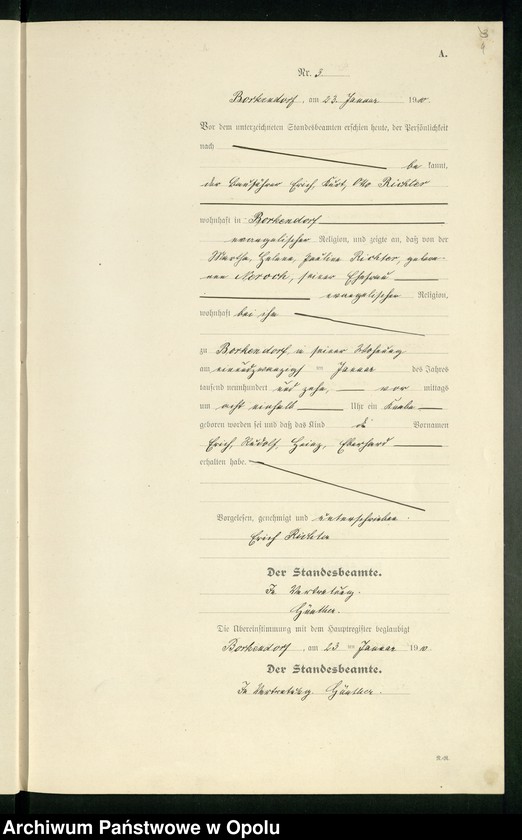 A.
Nr. 3
Borkendorf, am 23. Januar 1910.
Vor dem unterzeichneten Standesbeamten erschien heute, der Persönlichkeit
nach
bekannt,
der Bauführer Erich, Kurt, Otto Richter
wohnhaft in Borkendorf
evangelischer Religion, und zeigte an, daß von der
Martha, Helene, Pauline Richter, gebore-
nen Noroch, seiner Ehefrau
evangelischer Religion,
wohnhaft bei ihm
zu Borkendorf, in seiner Wohnung
am einundzwanzigsten Januar des Jahres
tausend neunhundert und zehn, vor mittags
um acht einhalb Uhr ein Knabe
geboren worden sei und daß das Kind die Vornamen
Erich, Rudolf, Heinz, Eberhard
erhalten habe.
Vorgelesen, genehmigt und unterschrieben.
Erich Richter
Der Standesbeamte.
In Vertretung.
Günther.
Die Übereinstimmung mit dem Hauptregister beglaubigt
Borkendorf, am 23 ten Januar 1910.
Der Standesbeamte.
In Vertretung. Günther.
Archiwum Państwowe w Opolu